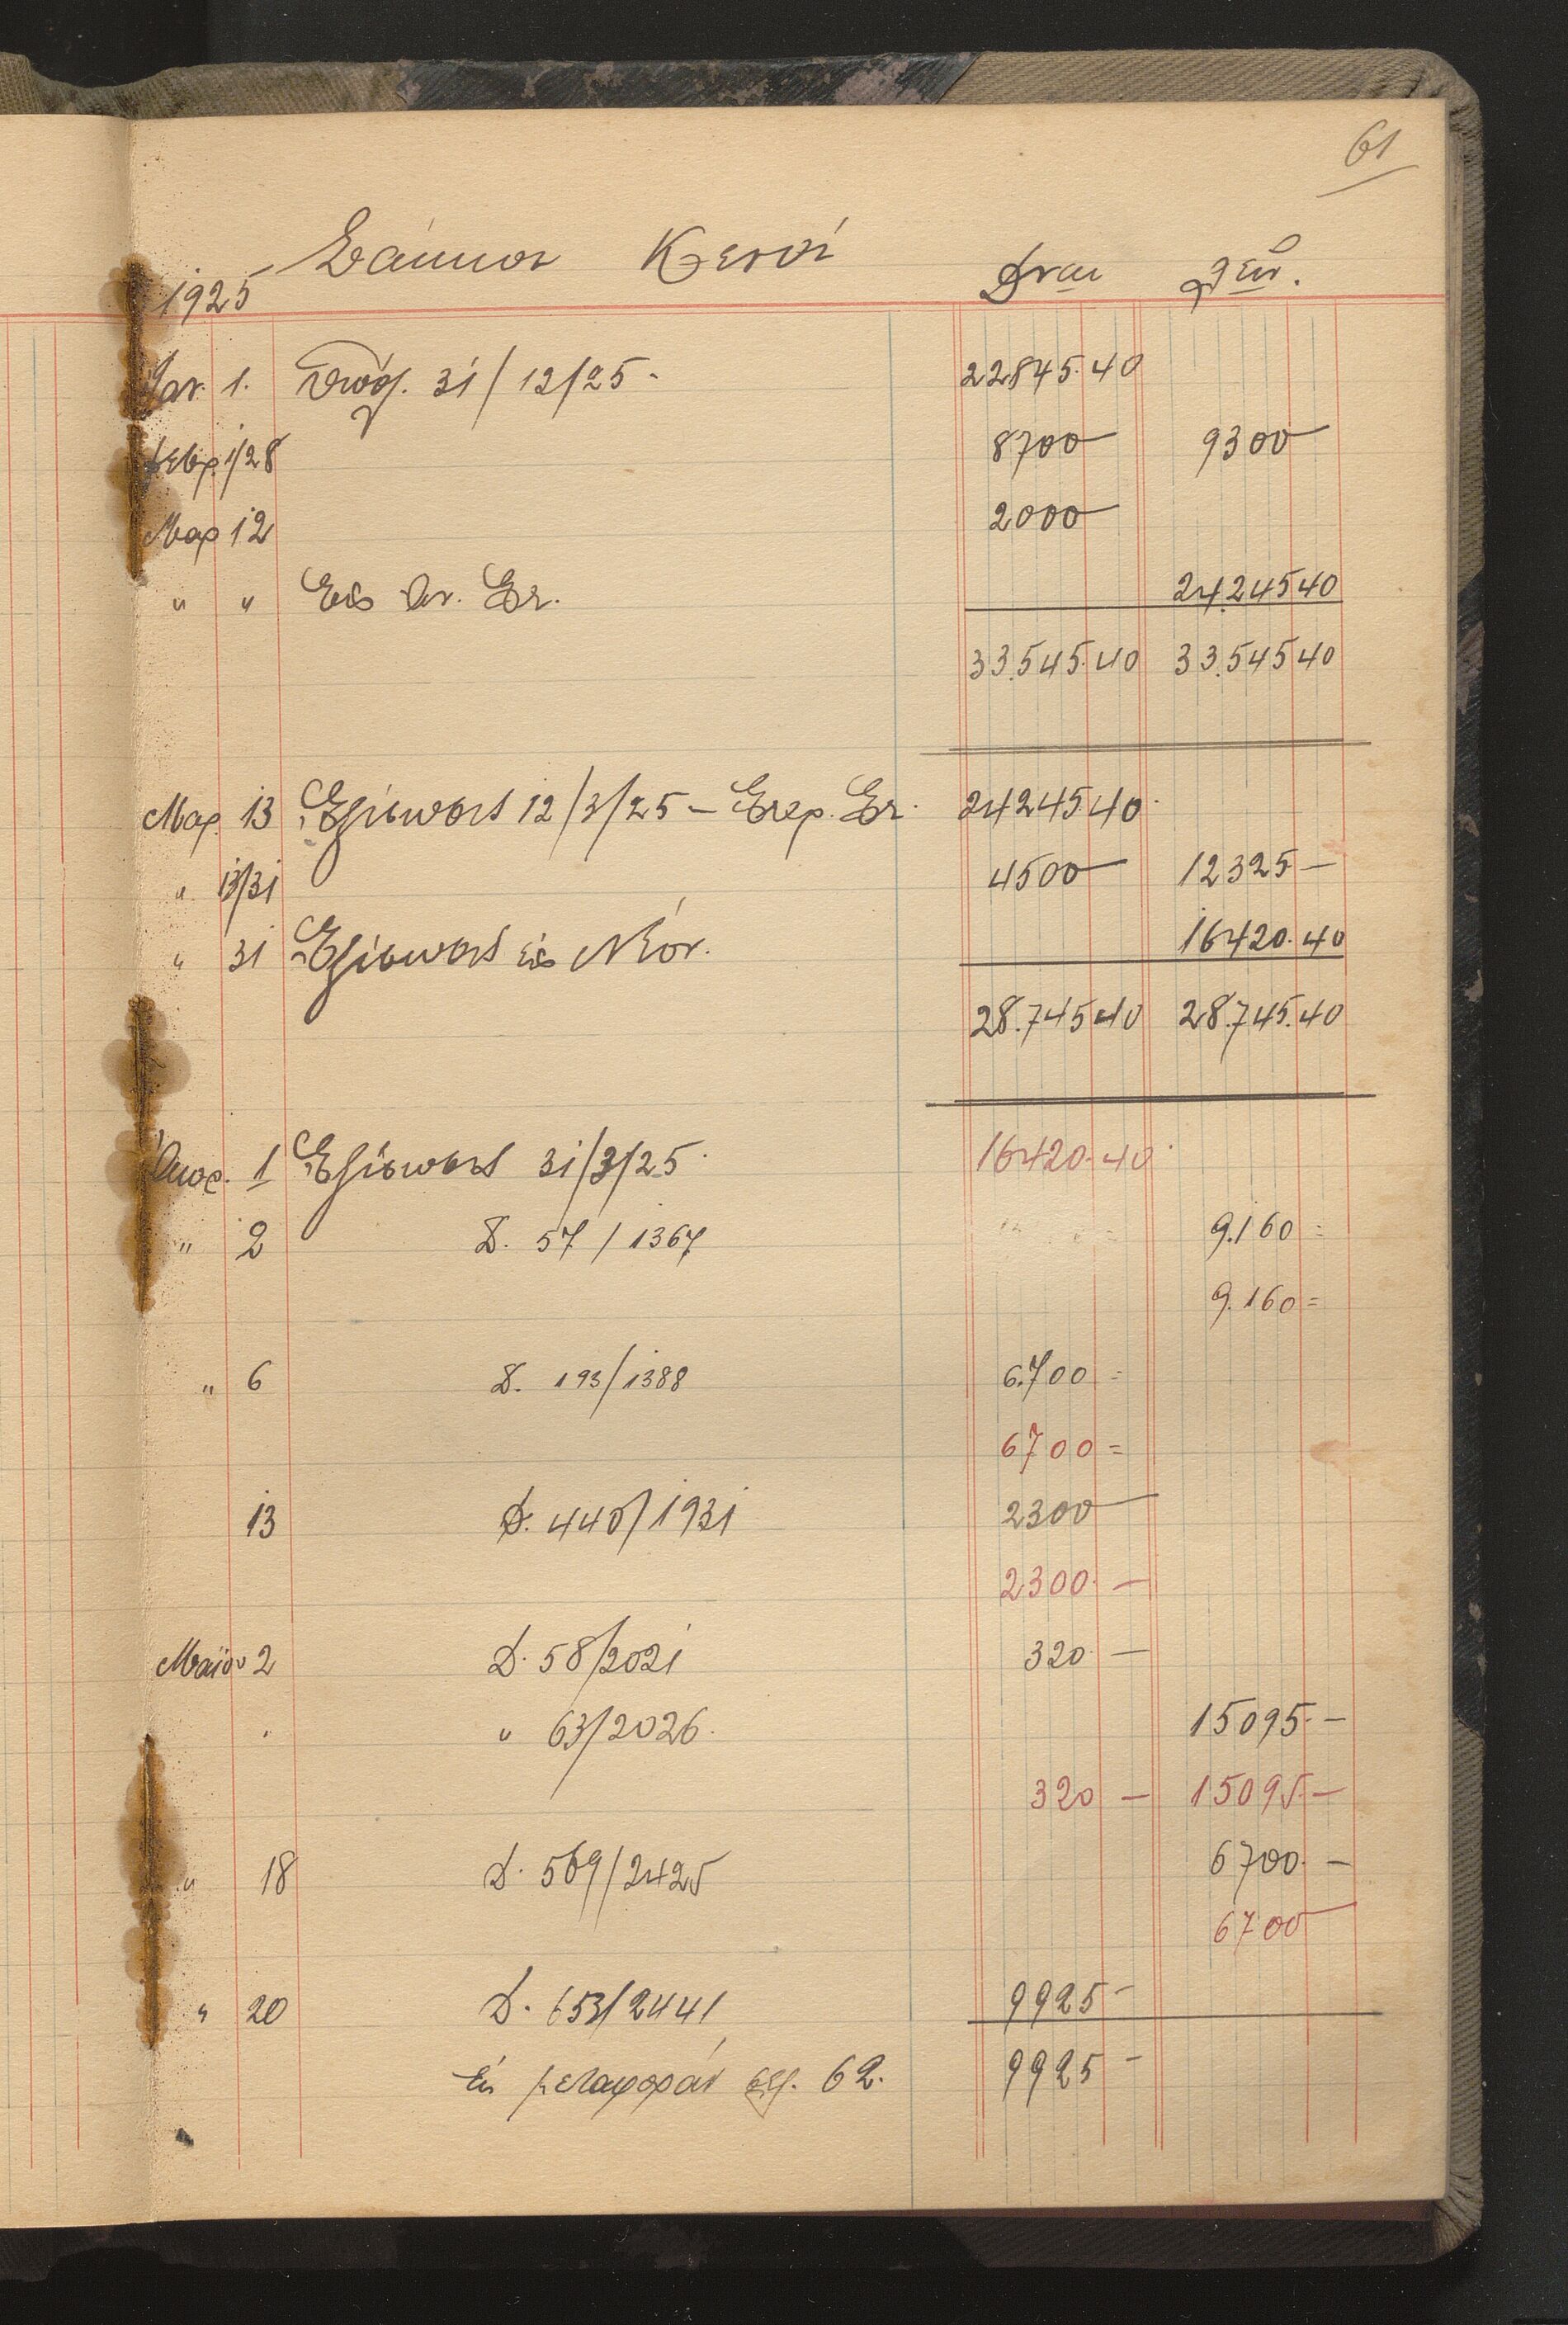 61
Σάκκοι Κενοί
1925
Δναι Λειν.
Ιαν. 1. Υπόλ. 31/12/25 - 22845.40
Φεβρ. 1/28 8700 — 9300 —
Μαρ 12 2000 —
" " Εις Αν. Εν. 24.24540
33.545.40 33.54540
Μαρ. 13 Εξίσωσις 12/3/25 - Ενερ. Εν. 24245.40
" 13/31 4500 — 12325 —
" 31 Εξίσωσις εις Νέον. 16420.40
28.74540 28.745.40
1 Εξίσωσις 31/3/25 16420.40
" 2 Δ. 57/1367 9.160 =
9.160 =
" 6 Δ. 193/1388 6.700 =
6700 =
13 Δ. 440/1931 2300 —
2300. —
Μαΐου 2 Δ. 58/2021 320. —
" 63/2026. 15095. —
320 — 15095. —
" 18 Δ. 569/2425 6700. —
6700 —
" 20 Δ. 653/2441 9925 -
Εις μεταφοράν σελ. 62. 9925 -